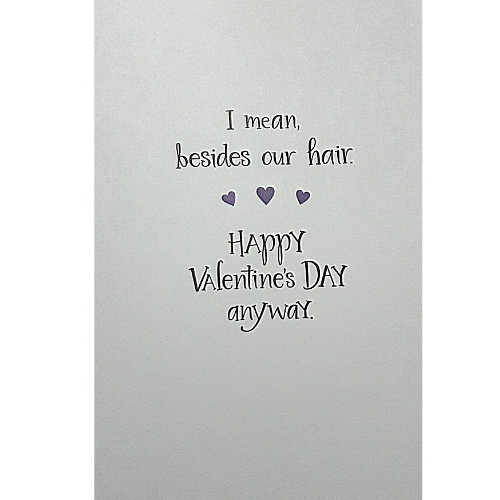 I mean,
besides our hair.
Happy
Valentine's Day
anyway.